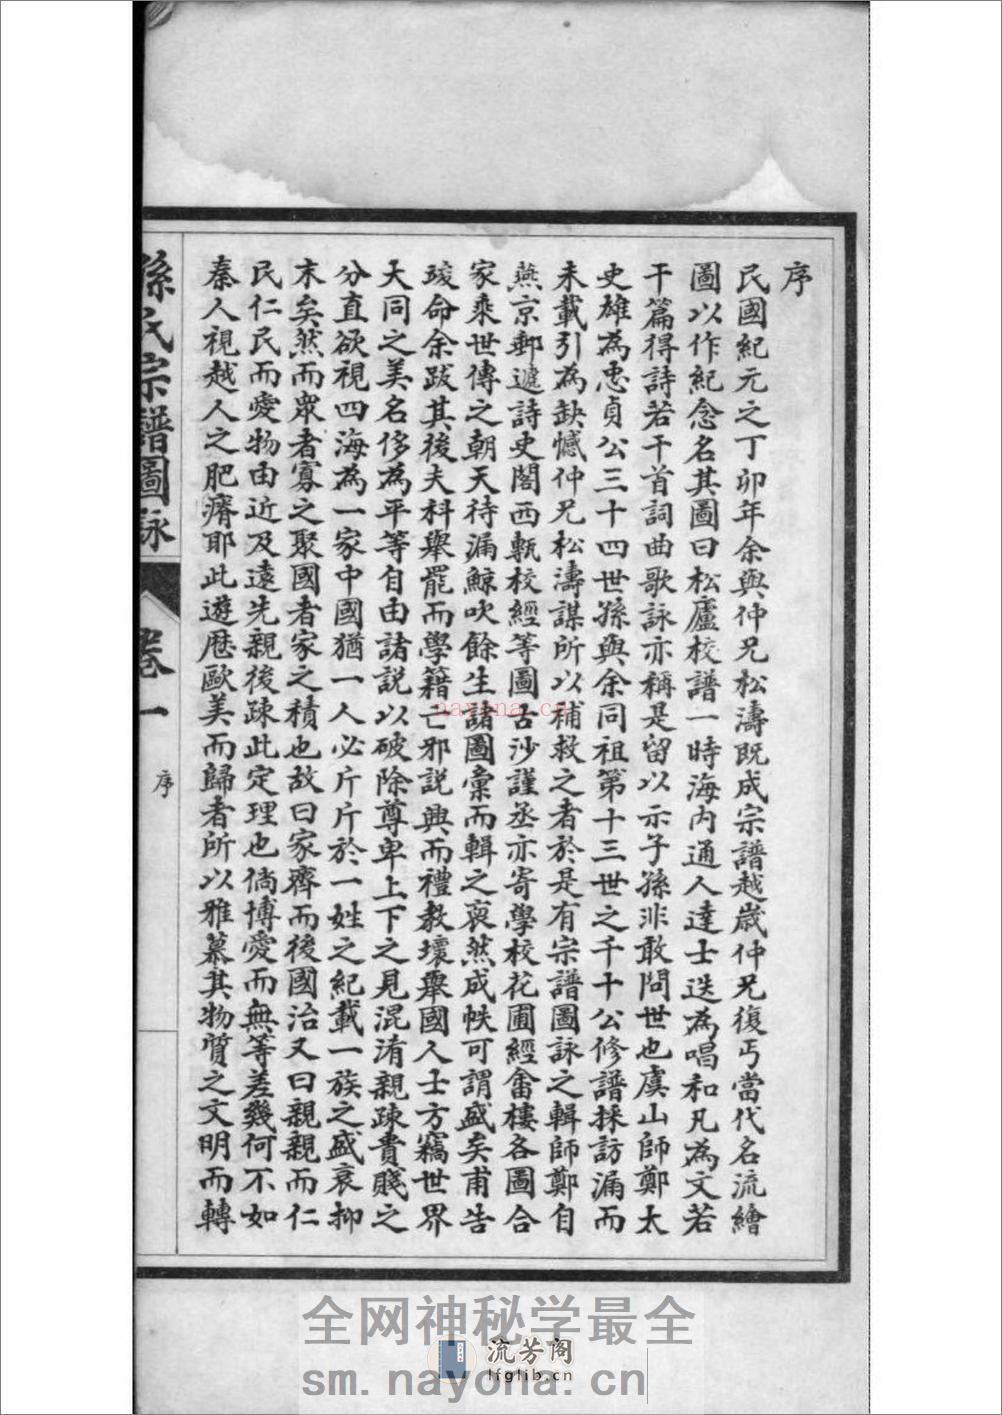 序
民國紀元之丁卯年余與仲兄松濤既成宗譜越歲仲兄復丐當代名流繪
圖以作紀念名其圖曰松廬校譜一時海內通人達士迭為唱和凡為文若
干篇得詩若干首詞曲歌詠亦稱是留以示子孫非敢問世也虞山師鄭太
史雄為忠貞公三十四世孫與余同祖第十三世之千十公修譜採訪漏而
未載引為缺憾仲兄松濤謀所以補救之者於是有宗譜圖詠之輯師鄭自
燕京郵遞詩史閣西甎校經等圖古沙謹丞亦寄學校花圃經畬樓各圖合
家乘世傳之朝天待漏鯨吹餘生諸圖彙而輯之裒然成帙可謂盛矣甫告
竣命余跋其後夫科舉罷而學籍亡邪説興而禮教壞舉國人士方竊世界
大同之美名侈為平等自由諸説以破除尊卑上下之見混淆親疎貴賤之
分直欲視四海為一家中國猶一人必斤斤於一姓之紀載一族之盛衰抑
末矣然而眾者寡之聚國者家之積也故曰家齊而後國治又曰親親而仁
民仁民而愛物由近及遠先親後疎此定理也倘博愛而無等差幾何不如
秦人視越人之肥瘠耶此遊歷歐美而歸者所以雅慕其物質之文明而轉
孫氏宗譜圖詠
卷一
序
nayona.cn
全网神秘学最全
流芳阁
lfglib.cn
sm.nayona.cn